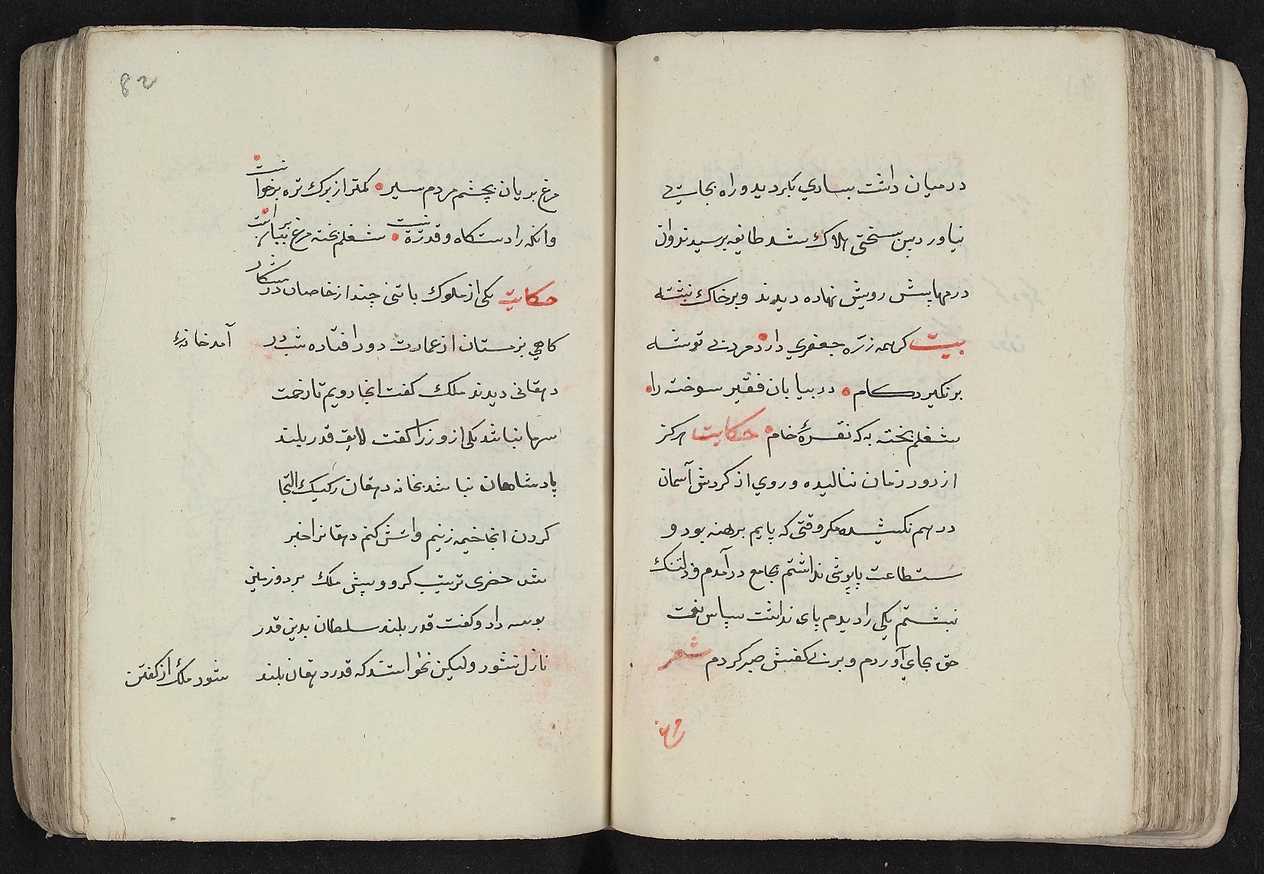 درمیان داشت بسیاری بکردید و راه بجایی
نیاورد پس بسختی هلاک شد طایفه برسیدند وان
درمها پیش رویش نهاده دیدند و بر خاک نبشته
بیت کر همه زرّ جعفری دارد مرد بی توشه
بر نکیرد کام در بیابان فقیر سوخته را
شغلم پخته به که نقرۀ خام حکایت هرکز
از دور زمان ننالیده و روی از کردش آسمان
درهم نکشیده مکر وقتی که پایم برهنه بود و
ستطاعت پاپوشی نداشتم بجامع درآمدم و دلتنک
نبشتم یکی را دیدم پای نداشت سپاس نعمت
حق بجای آوردم و بر بی کفشی صبر کردم شعر
مرغ
82
مرغ بریان بچشم مردم سیر کمتر از برک تره بر خوانست
وانکه را دستکاه و قدرة نیست شغلم پخته مرغ بریانست
حکایت یکی از ملوک با تنی چند از خاصان در شکار
کاهی بزمستان از عمارت دور افتاده شب در آمد خانۀ
دهقانی دیدند ملک کفت انجا رویم تا زحمت
سرما نباشد یکی از وزرا کفت لایق قدر بلند
پادشاهان نباشد بخانه دهقان رکیک التجا
کردن انجا خیمه زنیم و آتش کنم دهقانرا خبر
شد حضری ترتیب کرد و پیش ملک برد و زمین
بوسه داد و کفت قدر بلند سلطان بدین قدر
نازل نشود ولیکن نخواستند که قدر دهقان بلند شود ملک از کفتن